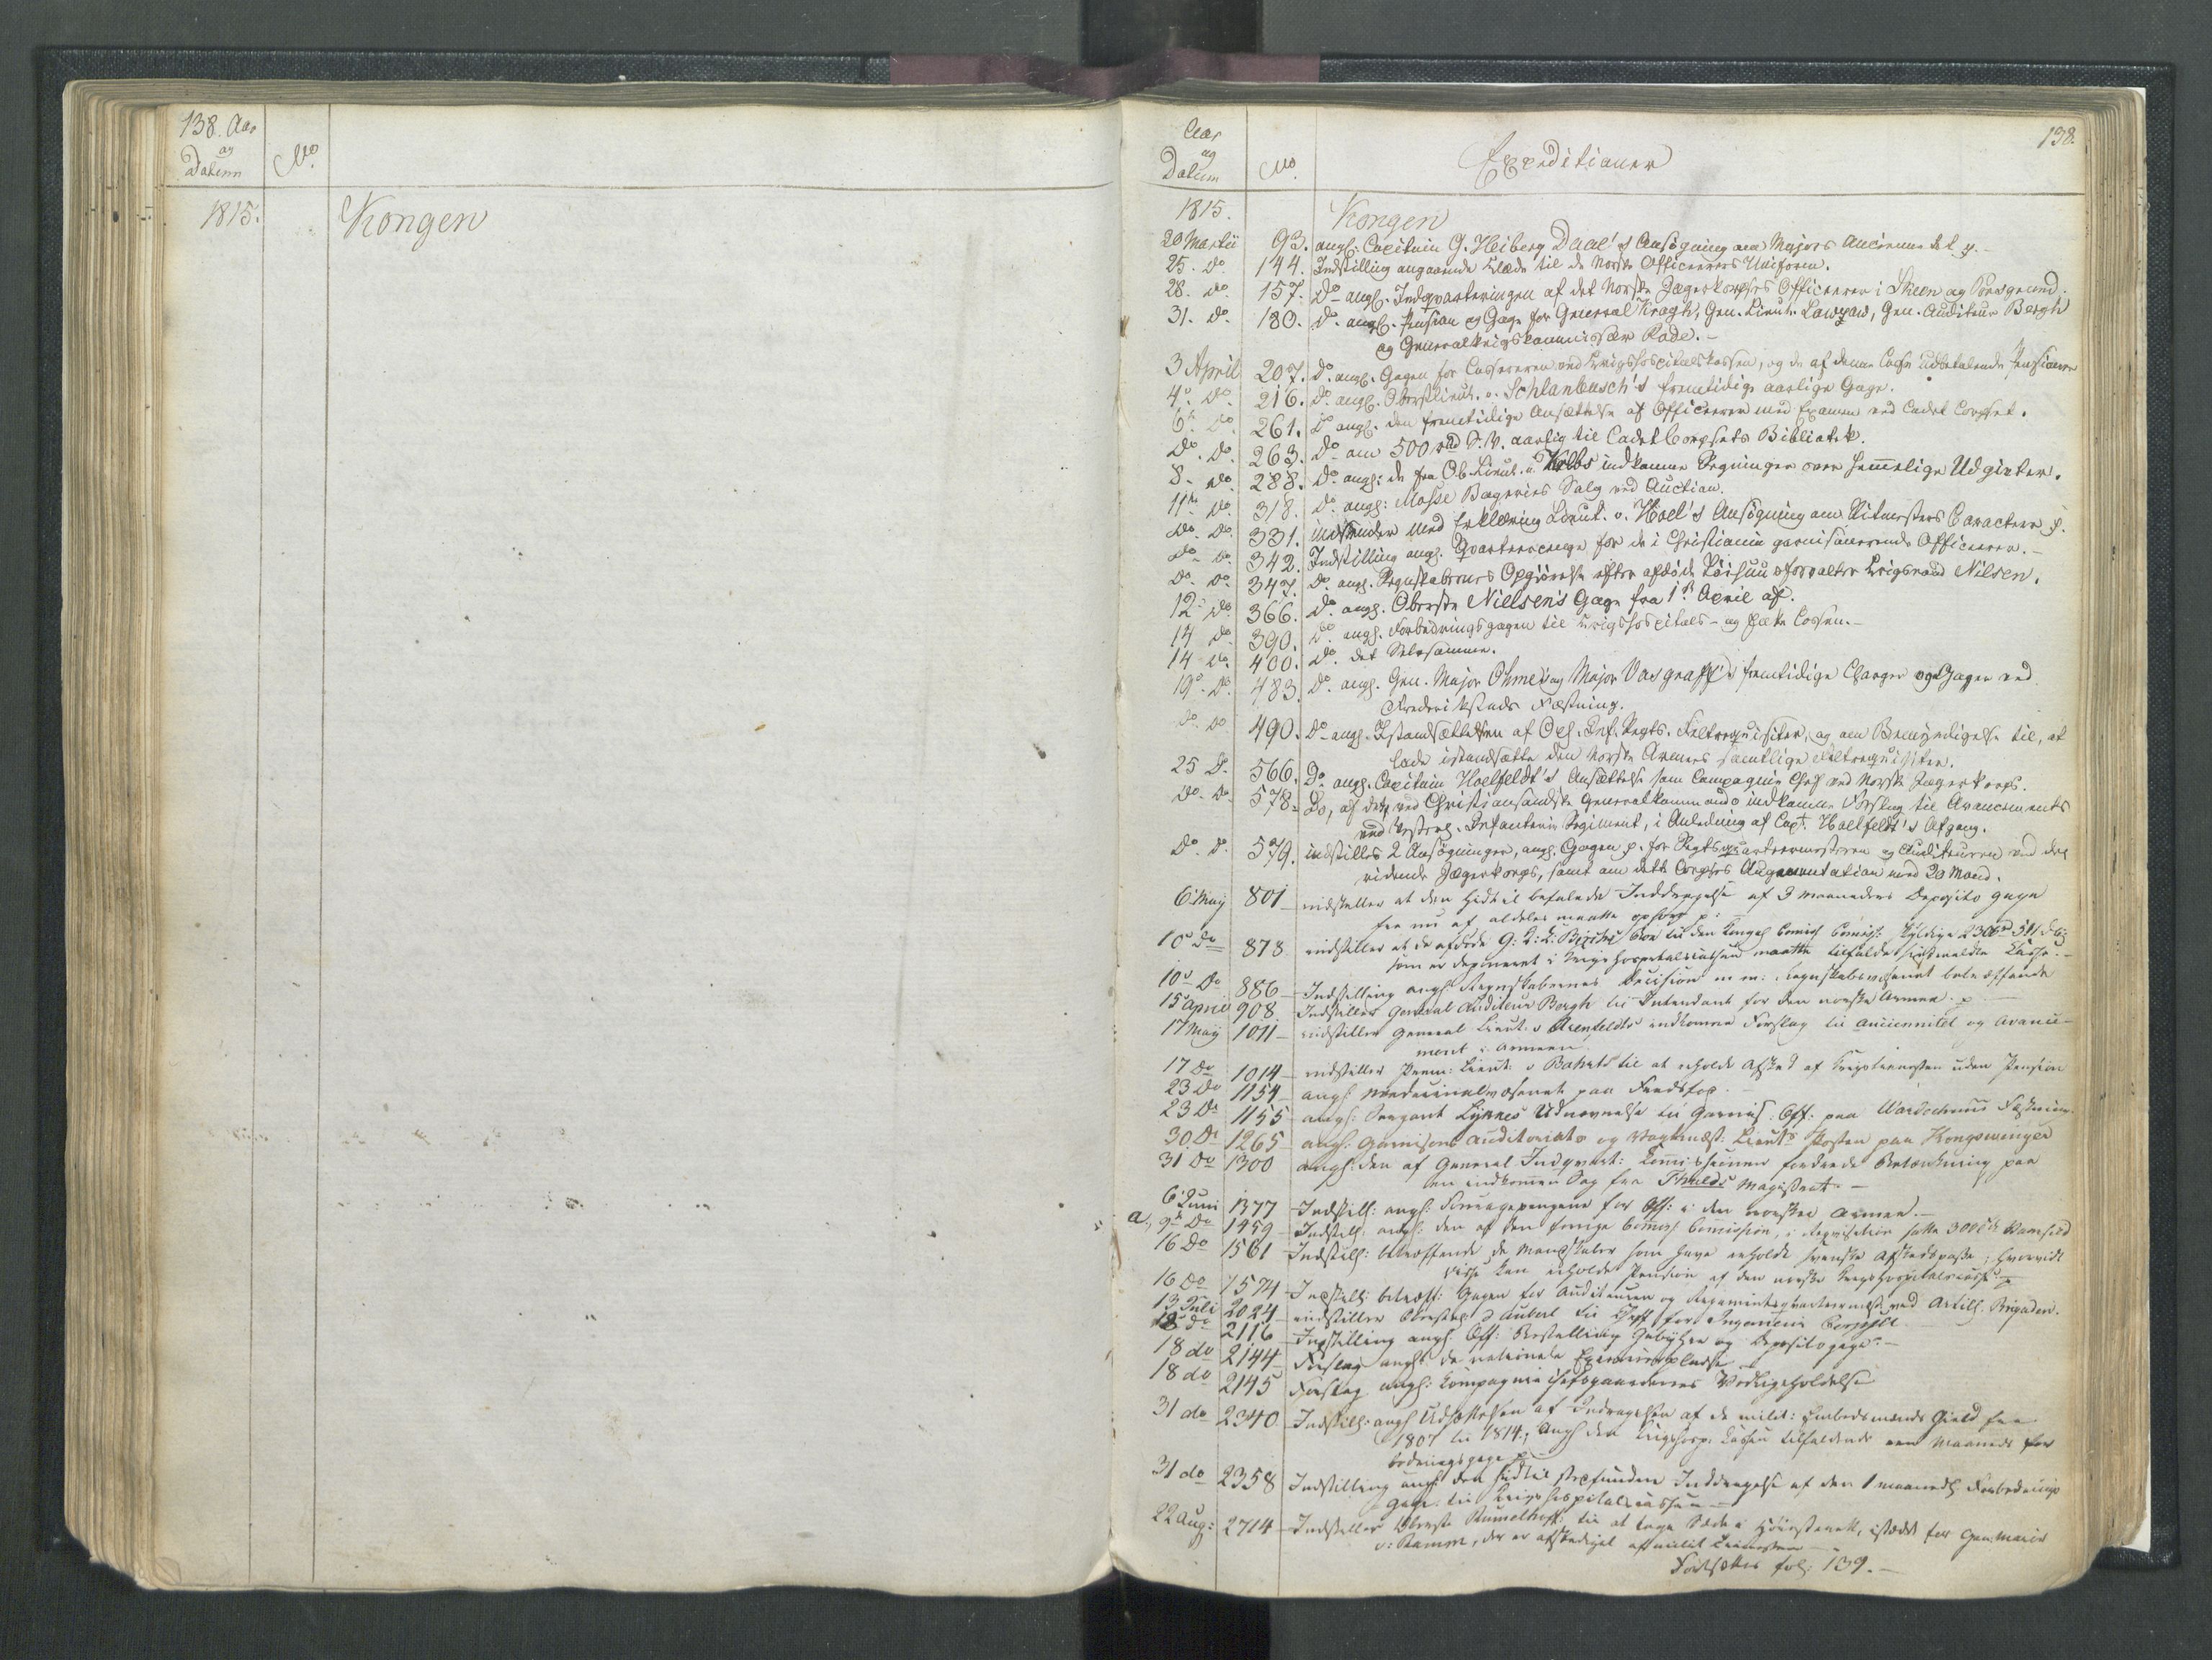 138. Aar
og
Datum
No.
1815.
Kongen
Aar
og
Datum
No.
Expeditioner
138.
1815.
Kongen
20 Martii 93. angl. Capitain G. Heiberg Daae's Ansøgning om Majors Ancienne
25. do. 144. Indstilling angaaende Klæde til de Norske Officerers Uniform.
28. do. 157. Do angl. Indqvarteringen af det Norske Jægerkorpses Officerer i Skeen og Porsgrund.
31. do. 180. Do. angl. Pension og Gage for General Kragh, Gen. Lieut. Lowzow, Gen. Auditeur Bergh
og Generalkrigskommissær Rode.
3 April 207. Do. angl. Gagen for Cassereren ved Krigshospitalskassen, og de af denne Casse udbetalende Pensioner
4. do. 216. Do. angl. Oberstlieut. v. Schlanbusch's fremtidige aarlige Gage.
6. do. 261. Do angl. den fremtidige Ansættelse af Officerer med Examen ved Cadet Corpset.
Do. Do. 263. Do om 500 rd S.V. aarlig til Cadetcorpsets Bibliotek.
8. do. 288. Do. angl: de fra Ob. Lieut. v. Kelbs indkomne Regninger over hemmelige Udgivter.
11 do. 318. Do. angl: Mosse Bageries Salg ved Auction.
Do. Do. 331. indsender med Erklæring Lieut. v. Hoel's Ansøgning om Ritmesters Caracteer p.
Do. do. 342. Indstilling angl. Qvarteerpenge for de i Christiania garnisonerende Officerer.
Do. do. 347. Do angl. Regnskabernes Opgiørelse efter afdøde Krigsraad Nilsen.
12 do. 366. Do. angl. Oberste Nielsen's Gage fra 1ste April af.
14 do. 390. Do. angl. Forbedringsgagen til Krigshospitals- og Cassen.
14 do. 400. Do. det Selvsamme.
19. do. 483. Do. angl. Gen. Major Ohme's og Major Vosgraff's fremtidige Charger og Gager ved
Frederikstads Fæstning.
Do. do 490. Do angl. Istandsættelsen af Opl. Inf. Regts. Feltrequisiter, og om Bemyndigelse til, at
lade istandsætte den Norske Armees samtlige Feltrequisiter.
25 do. 566. Do angl. Capitain Hoelfeldt's Ansættelse som Compagnie Chef ved Norske Jægerkorps.
Do. do. 578. Do, af det ved Christiansandske Generalkommando indkomne Forslag til Avancements
ved Vesterl. Infanterie Regiment, i Anledning af Capt. Hoelfeldt's Afgang.
Do. do. 579. indstilles 2 Ansøgninger, angl. Gagen p. for Regtsqvarteermesteren og Auditeuren ved det
ridende Jægerkorps, samt om dette Corpses Augmentation med 20 Mand.
6. May 801 indstiller at den hidtil befalede Inddragelse af 3 maaneders Deposito gage
fra nu af aldeles maatte ophøre p:
10 Do 878 indstiller at de afdøde G: K: K: til den Kongel Comiss: skyldige
som er deponeret i Krigshospitalscassen maatte tilfalde sidstmeldte Casse.
10 Do 886 Indstilling angl. Regnskabernes Decision m.m. Regnskabsvæsenet betræffende
15 April 908 Indstiller General Auditeur Bergh til Intendant for den norske Armee. p
17 May 1011 indstiller General Lieut. v Arenfeldts indkomne Forslag til anciennitet og avance-
ment i armeen
17 Do 1014 indstiller Prem: Lieut: v til at erholde Afsked af Krigstienesten uden Pension
23 Do 1154 angl. Medicinalvæsenet paa
23 Do 1155 angl. Sergant Lynnes Udnævnelse til Garnis. Off. paa Wardoehuus Fæstning
30 Do 1265 angl. Garnisons Auditoriats og Lieuts Posten paa Kongswinger
31 Do 1300 angl. den af General Indqvart: Commissionen fordrede Betænkning paa
en indkommen Sag fra Magistrat.
6 Juni 1377 Indstill: angl. Fouragepengene for Off: i den norske Armee.
a., 9 Do 1459 Indstill. angl. den af den forrige Comission, i Reqvisition satte
16 Do 1561 Indstill: betræffende de Mandskaber som have erholdt svenske Afskedspasse, hvorvidt
disse kan erholde Pension af den norske Krigshospitalscasse
16 Do 1574 Indstill: betræff: Gagen for Auditeuren og Regimentsqvarteermest. ved Artill. Brigaden.
13 Juli 2024 indstiller Oberstl. d'Aubert til Cheff for Ingenieur Corpset
18 Do 2116 Indstilling angl. Off: Bestallings Gebyhrer og Depositogage.
18 do 2144 Forslag angl. de nationale Exerceerpladse
18 do 2145 Forslag angl: Compagnie Chefsgaardenes Vedligeholdelse
31 do 2340 Indstill: angl. Udsættelsen af Inddragelsen af de milit: Embedsmænds Gield fra
1807 til 1814, angl. den Krigshosp. Cassen tilfaldende een Maaneds for
bedringsgage
31 do 2358 Indstilling angl. den hidtil stedfundne Inddragelse af den 1 maanedl. Forbedrings
gage til Krigshospitalscassen
22 Aug: 2714 Indstiller Oberste til at tage Sæde i Høiesteret, istædet for Gen: Maior
v: , der er afskediget af milit Tienesten
Fortsættes fol: 139.